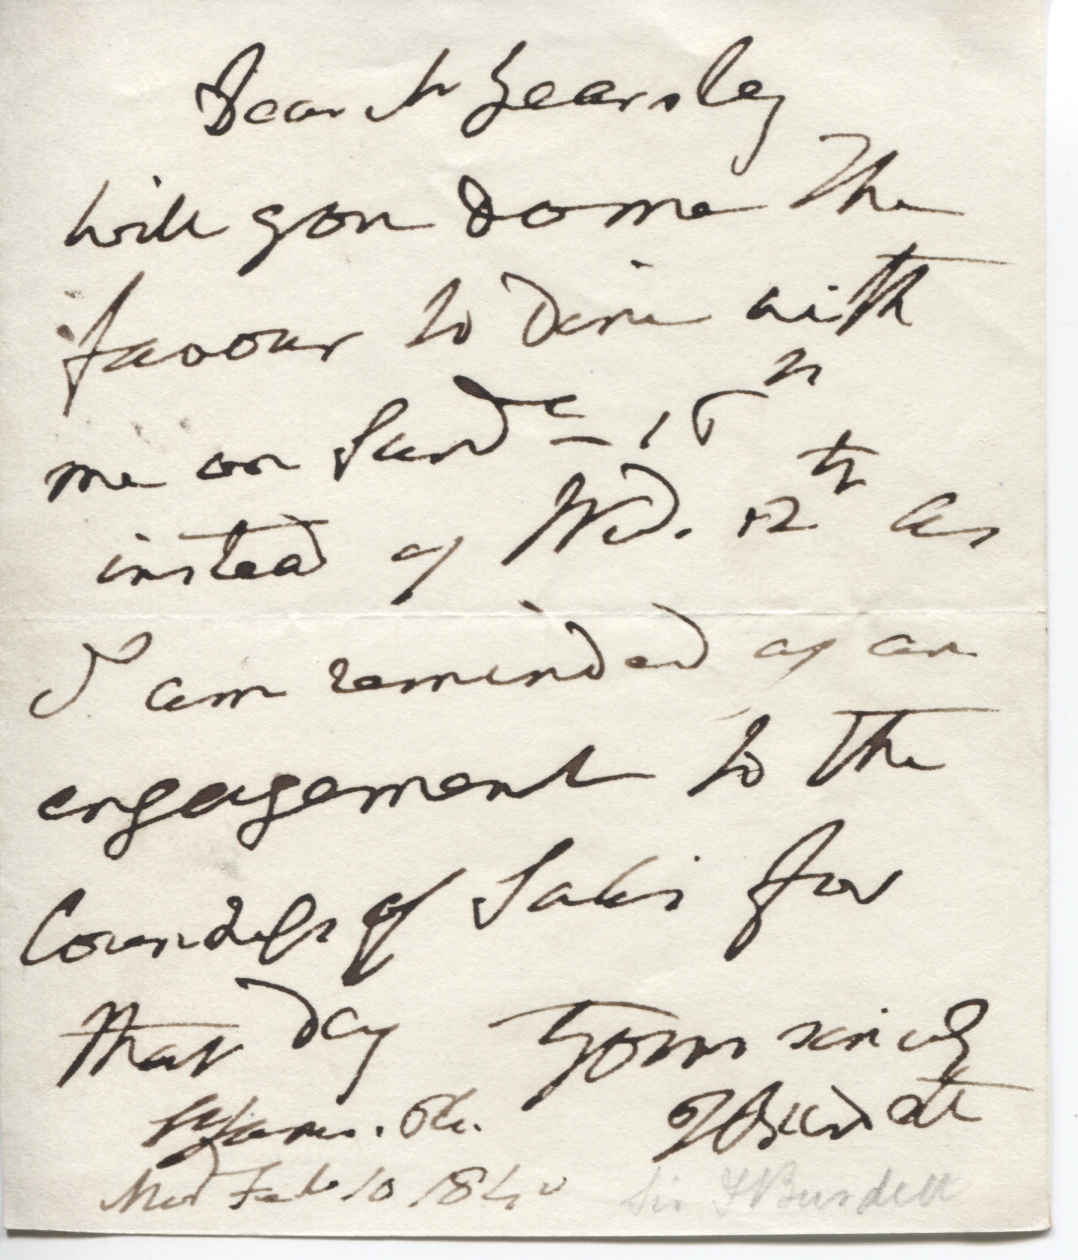 Dear Mr Yearsley
will you do me the
favour to dine with
me on Sunde 16th
instead of Wed. 12th as
I am reminded of an
engagement to the
Countess of Salis for
that day Yours sincly
St James. Pl. FBurdett
Mnd Feb 10 1840 Sir F Burdett